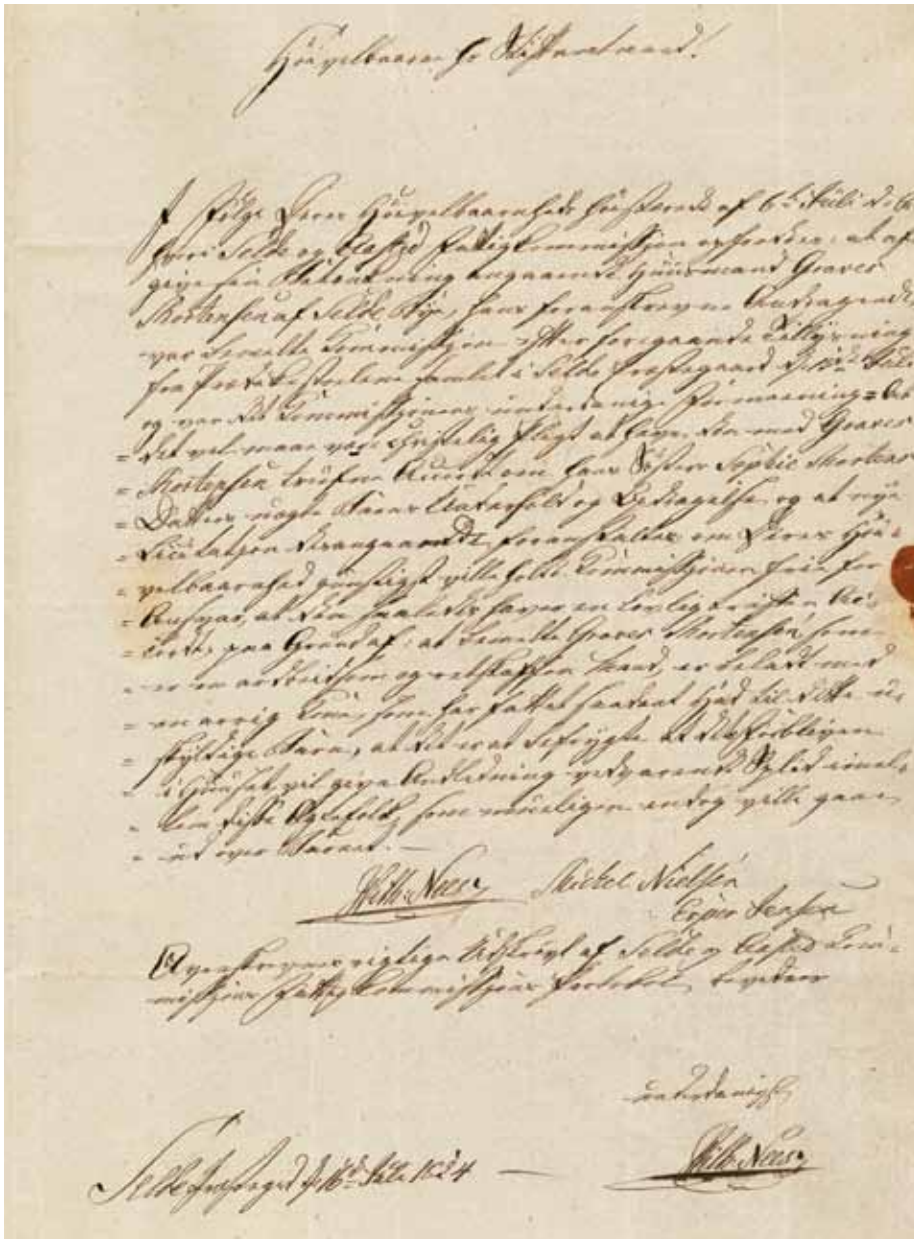 Høivelbaarne Hr Stiftamtmand!
I Følge Deres Høivelbaarnheds af 6te Juli d. A.
hvori Selde og Aasted Fattigkommissjon opfordres, at af-
give sin Betænkning angaaende Huusmand Graves
Mortensen af Selde Bye, hans foranskrevne Andragende
var bemeldte Kommissjon efter foregaaende Tillysning
fra Prædikestolene samlet i Selde Præstegaard d. 15de Juli
og var det Kommissjonens underdanige Formeening = At
= det vel maae være christelig Pligt at hæve den med Graves
= Mortensen trufne Accord om hans Søsters Sophie Mortens
= Datters uægte Barns Underhold og Opdragelse, og at nye
= Licitatsjon desangaaende foranstaltes om Deres Høi-
= velbaarnhed gunstigst ville holde Kommissjonen frie for
= Ansvar, at den saaledes hæver en lovlig truffen Ac-
= corde, paa Grund af, at bemeldte Graves Mortensen, som
= er en arbeidsom og retskaffen Mand, er beladt med
= en arrig Kone, som har fattet saadant Had til dette u-
= skyldige Barn, at det er at befrygte at dets Forbliven
= i Huuset vil give Anledning vedvarende Splid imel-
= lem disse Ægtefolk, som mueligen endog ville gaae
= ud over Barnet. —
With: Neess Michel Nielsen
Esper Jensen
Ovenskrevnes rigtige Udskrivt af Selde og Aasted Kom-
missjons Fattigkommissjons Protokol, bevidner
underdanigst
Selde Præstegd d. 16de Juli 1824 — With: Neess